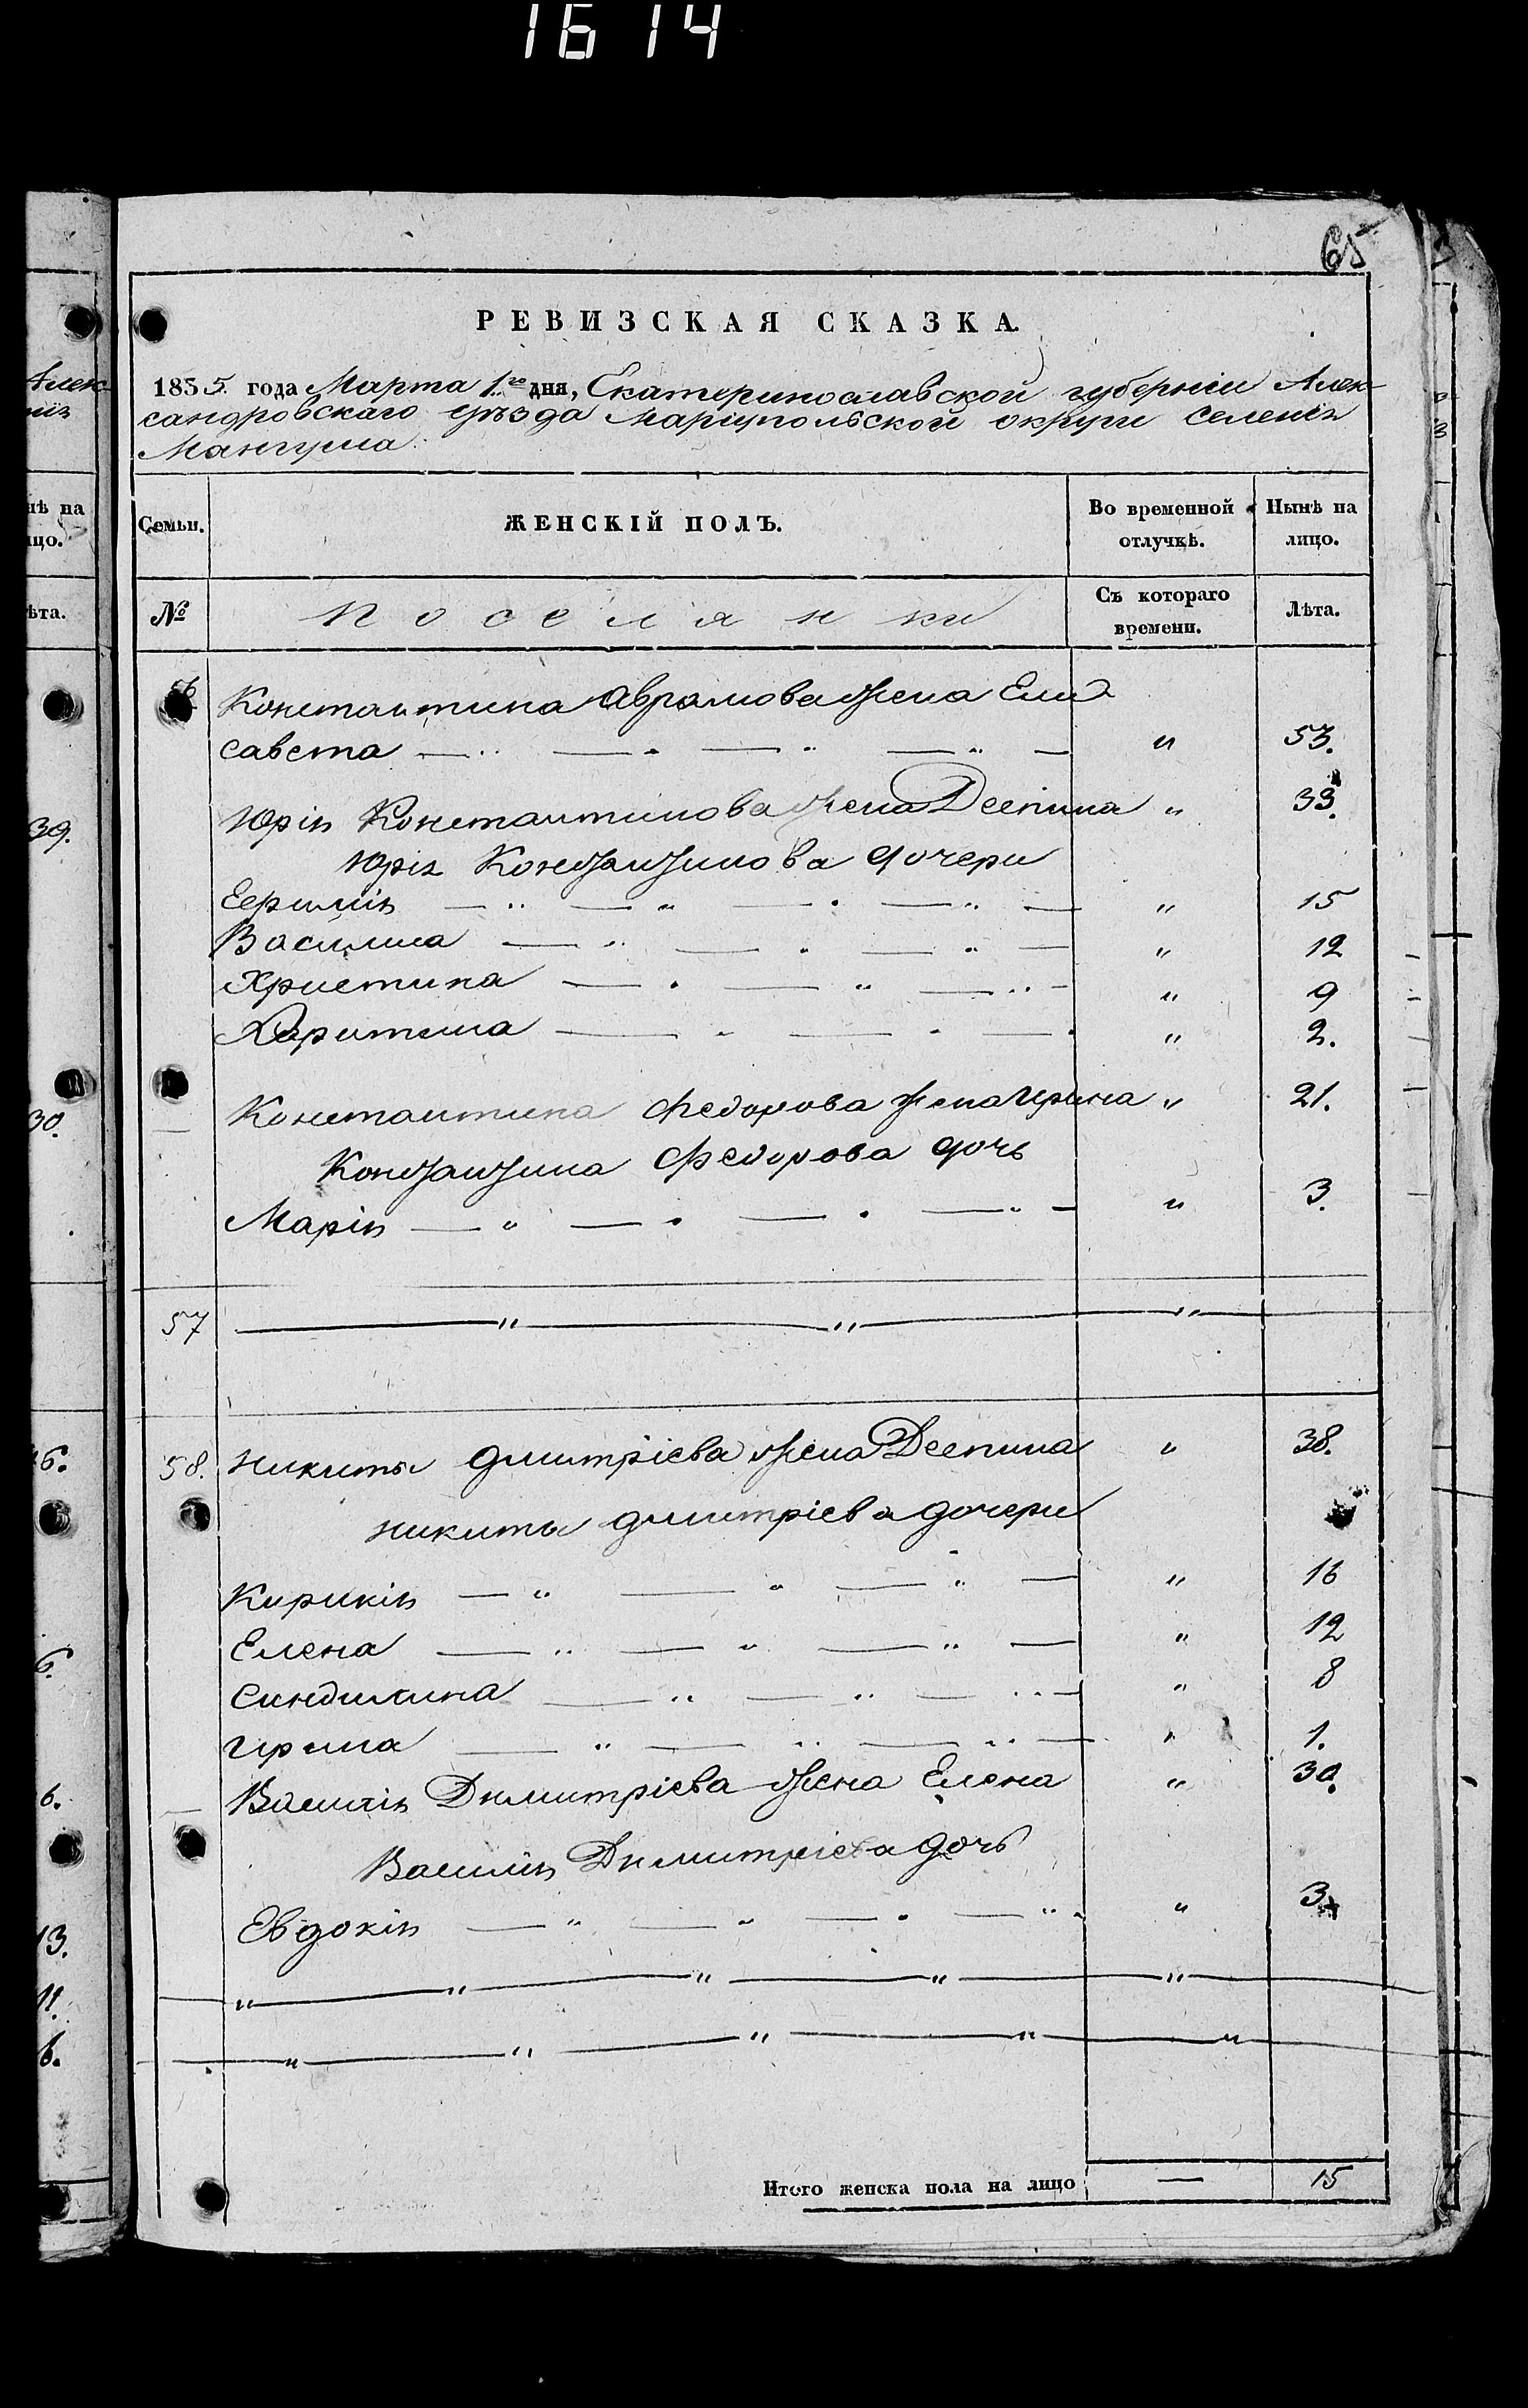 1614
65
РЕВИЗСКАЯ СКАЗКА.
1835 года Марта 1го дня, Екатеринославской губерніи Алек-
сандровскаго уѣзда Маріупольской округи Селенія
Мангуша
Семьи.
ЖЕНСКІЙ ПОЛЪ.
Во временной отлучкѣ.
Нынѣ на лицо.
№
Поселянки
Съ котораго времени.
Лѣта.
56 Константина Аврамова жена Ели
савета — " — " — " — " — " 53.
Юрія Константинова жена Деспина " 33.
Юрія Константинова дочери
— " — " — " — " — " 15
Василиса — " — " — " — " 12
Христина — " — " — " — " 9
Харитина — " — " — " " 2.
Константина Федорова жена Ирина " 21.
Константина Федорова дочь
Марія — " — " — " — " — " 3.
57 — " — " — " —
58. Никиты Дмитріева жена Деспина " 38.
Никиты Дмитріева дочери
Кирикія — " — " — " — " 16
Елена — " — " — " — " 12
Синдилина — " — " — " — " 8
Ирина — " — " — " — " 1.
Василія Димитріева жена Елена " 30.
Василія Димитріева дочь
Евдокія — " — " — " — " " 3.
" — " — " — " — " —
— " — " — " — " — " —
Итого женска пола на лицо — 15